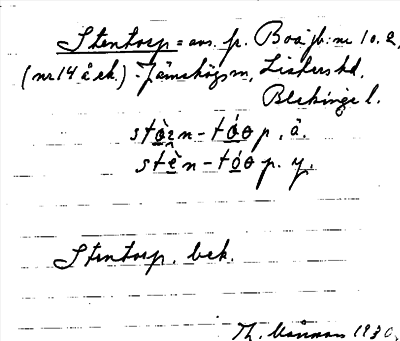 Stentorp = avs. fr. Boa jb: nr 10.2,
(nr 14 å ek.) Jämshögs sn, Listers hd,
Blekinge l.
stò̤ɪn-tóɵp, ä.
stèn-tóɵp. y.
Stentorp. bek.
Th. 1930.